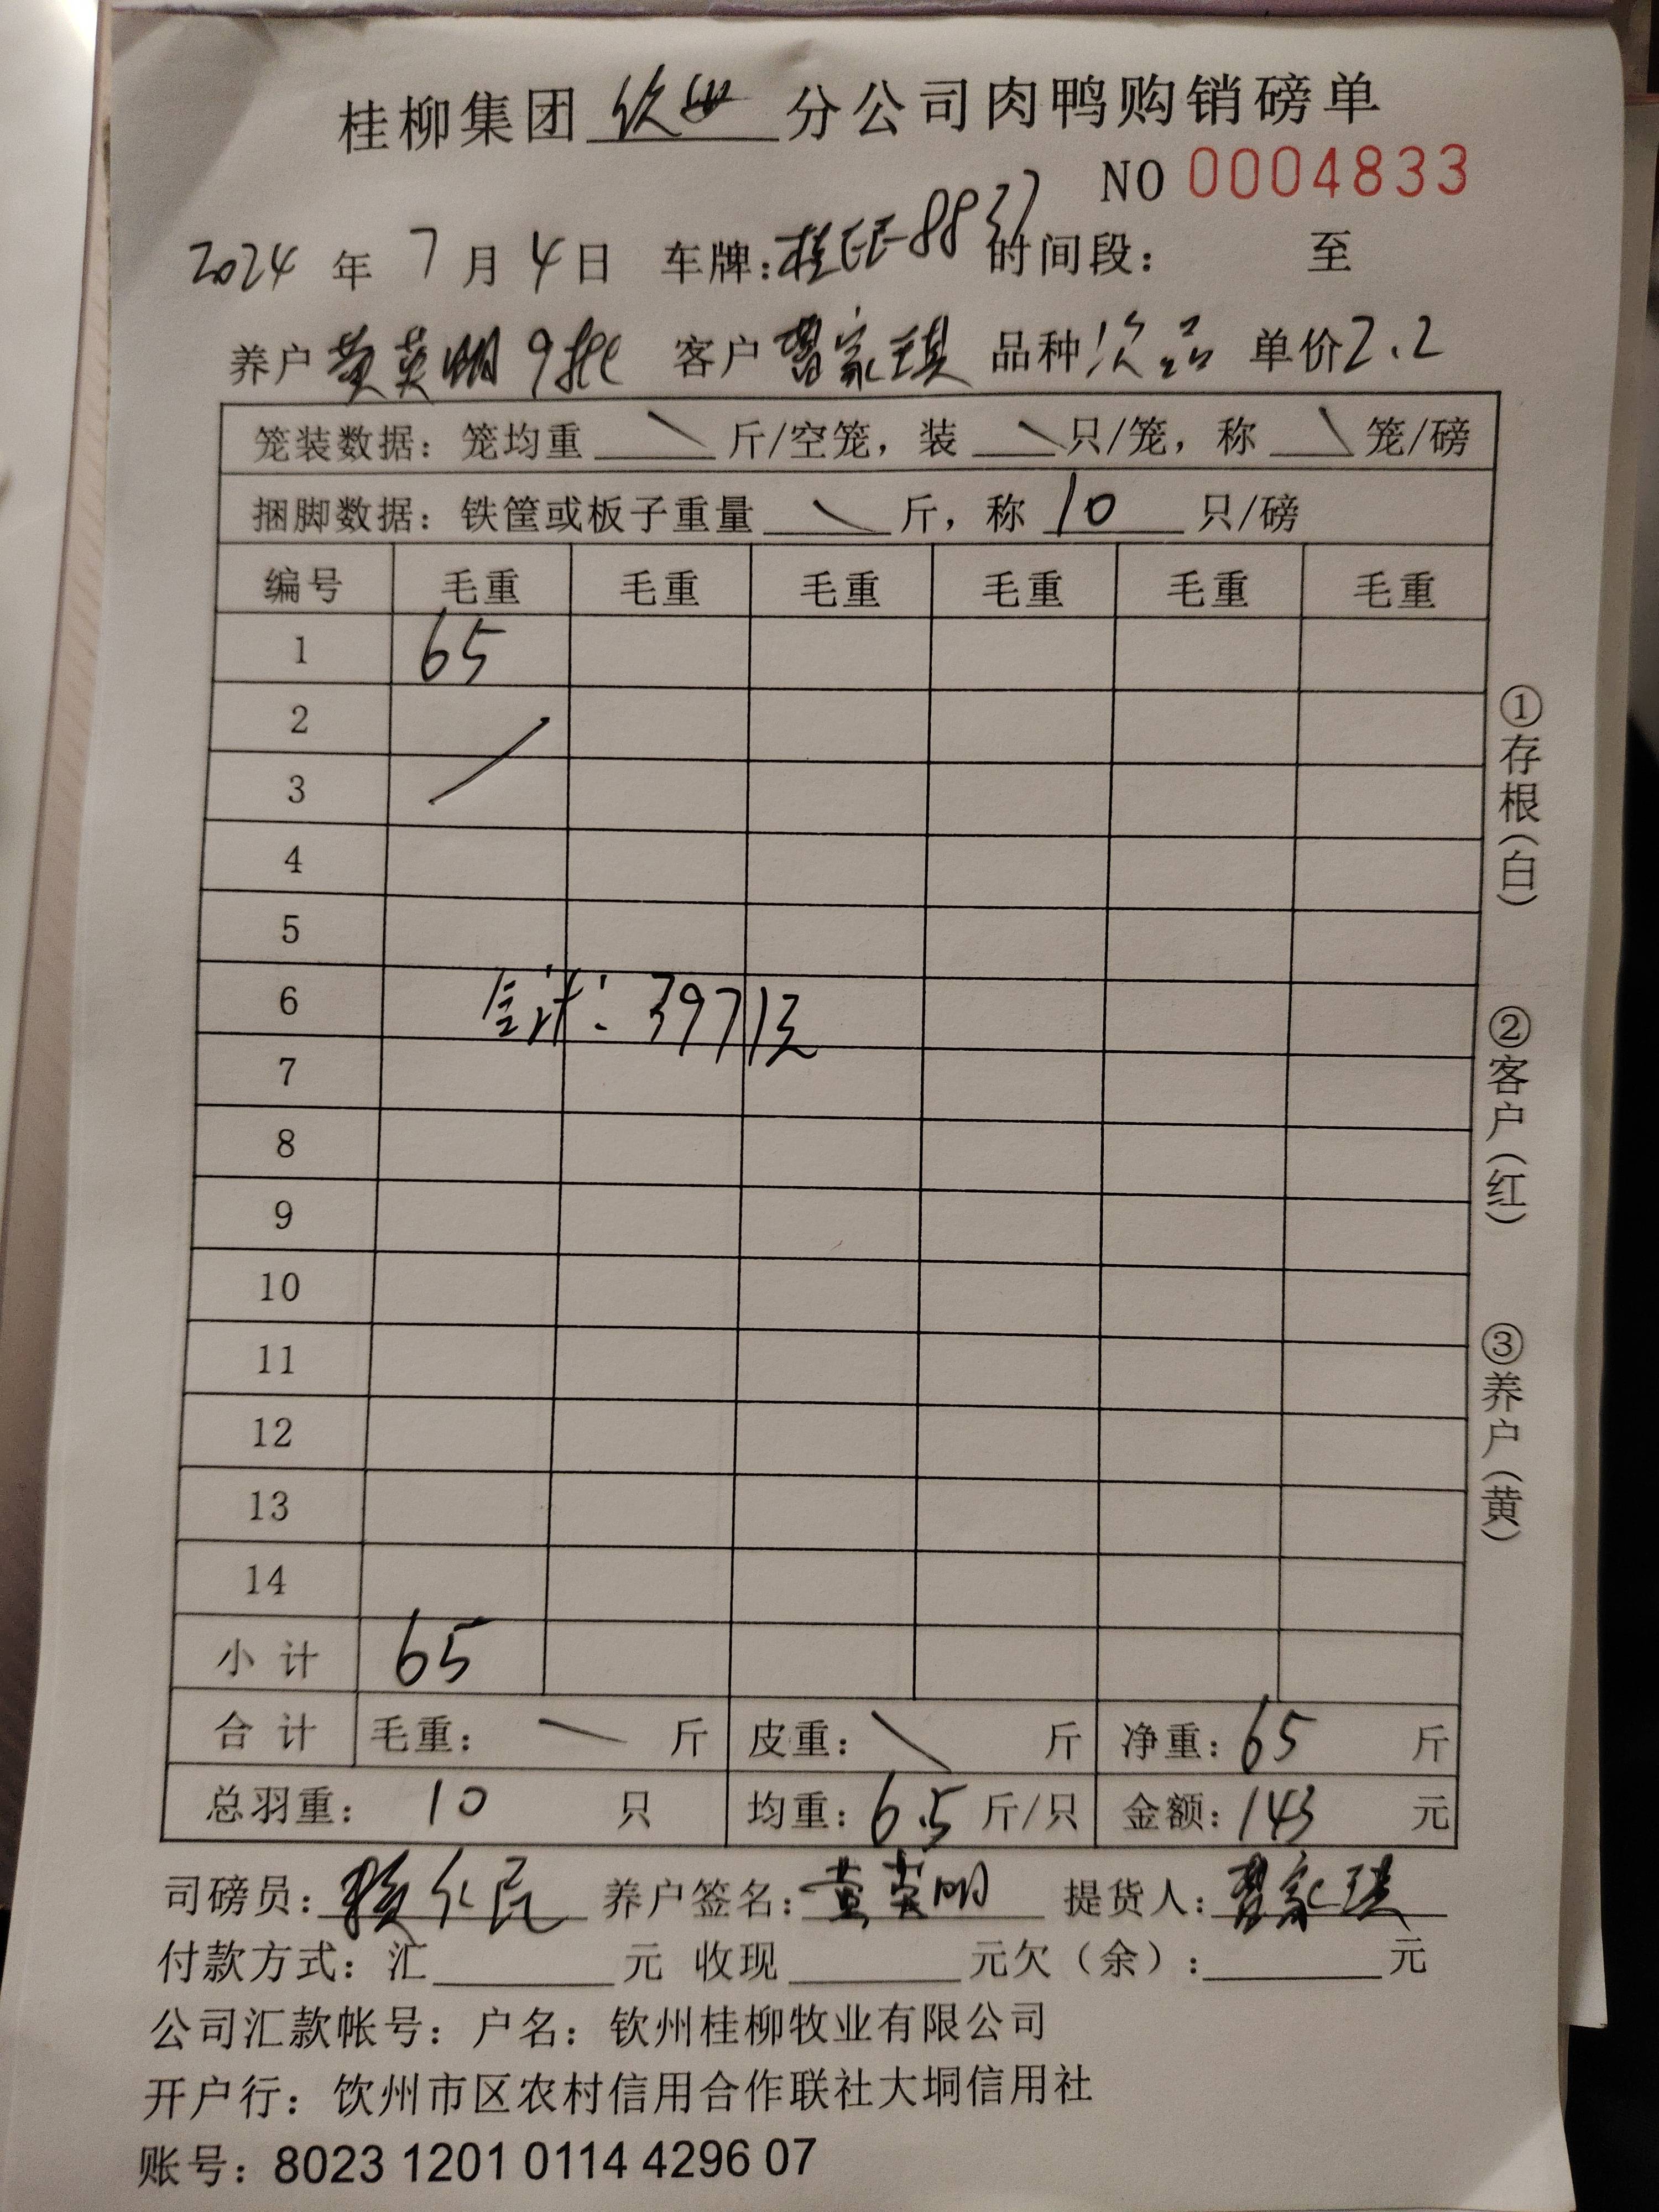 桂柳集团 钦州 分公司肉鸭购销磅单
NO 0004833
2024 年 7 月 4 日 车牌: 8837 时间段: 至
养户 黄英明 9批 客户 曹家琪 品种 次品 单价 2.2
笼装数据: 笼均重 \ 斤/空笼, 装 \ 只/笼, 称 \ 笼/磅
捆脚数据: 铁筐或板子重量 \ 斤, 称 10 只/磅
编号 毛重 毛重 毛重 毛重 毛重 毛重
1 65
2
3
4
5
6 合计: 3971只
7
8
9
10
11
12
13
14
小计 65
合计 毛重: \ 斤 皮重: \ 斤 净重: 65 斤
总羽重: 10 只 均重: 6.5 斤/只 金额: 143 元
司磅员: 赖仁民 养户签名: 黄英明 提货人: 曹家琪
付款方式: 汇 元 收现 元欠(余): 元
公司汇款帐号: 户名: 钦州桂柳牧业有限公司
开户行: 钦州市区农村信用合作联社大垌信用社
账号: 8023 1201 0114 4296 07
①存根(白)
②客户(红)
③养户(黄)